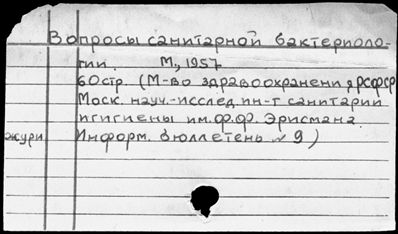 Вопросы санитарной бактериоло-
гии. М., 1957.
60стр. (М-во здравоохранения РСФСР
Моск. науч.-исслед. ин-т санитарии
и гигиены им. Ф.Ф. Эрисмана.
журн. Информ. бюллетень № 9)